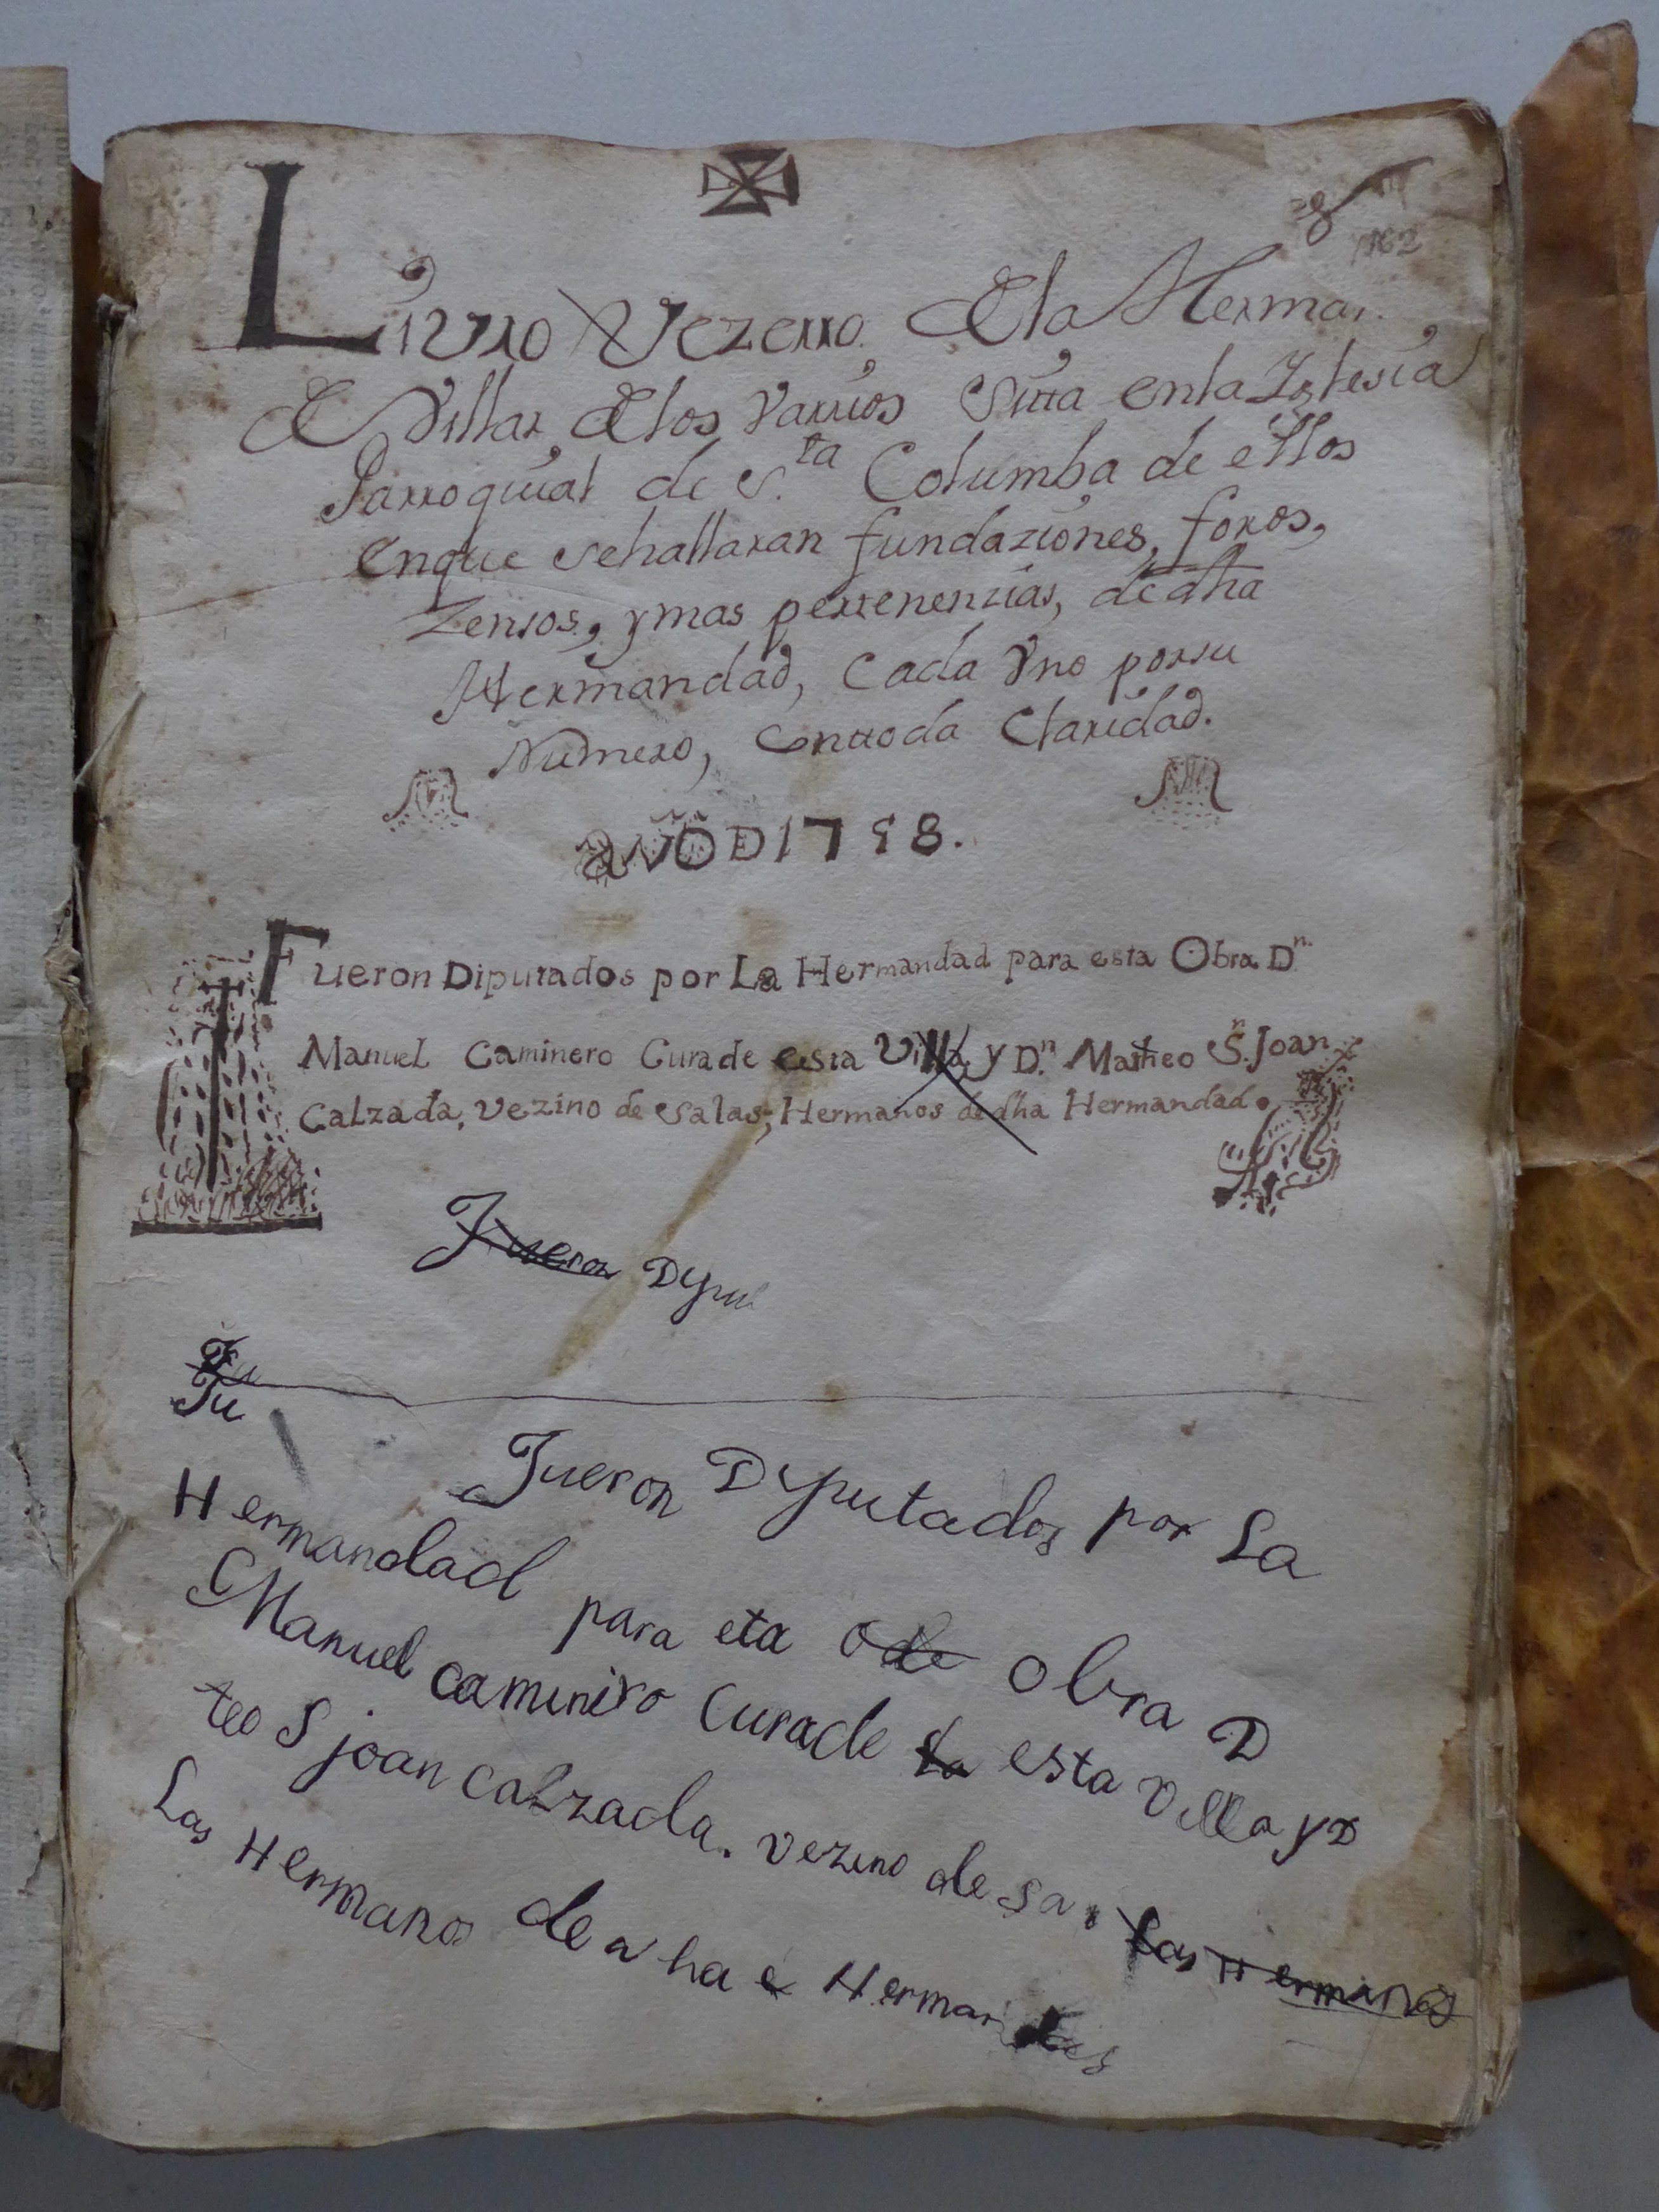 Livro Vezerro Dela Herma.
De Villar Delos Varrios Sitta enla Iglesia
Parroquial de S.ta Columba de ellos
enque sehallaran fundaziones, foros,
Zensos, y mas pertenenzias, de dha
Hermandad, Cada Vno porsu
Numero, Conttoda Claridad.
AÑO D 1758.
Fueron Diputados por La Hermandad para esta Obra Dn.
Manuel Caminero Cura de esta Villa, y Dn. Matheo Sn. Joan
Calzada, vezino de Salas, Hermanos de dha Hermandad.
Fueron DYpu
Fu
Fu
Fueron DYputados por La
Hermandad para eta ode obra D
Manuel caminiro Curade la esta villa y D
teo S joan calzada. vezino de sa. Las Hermanos
Las Hermanos de a ha e Herman